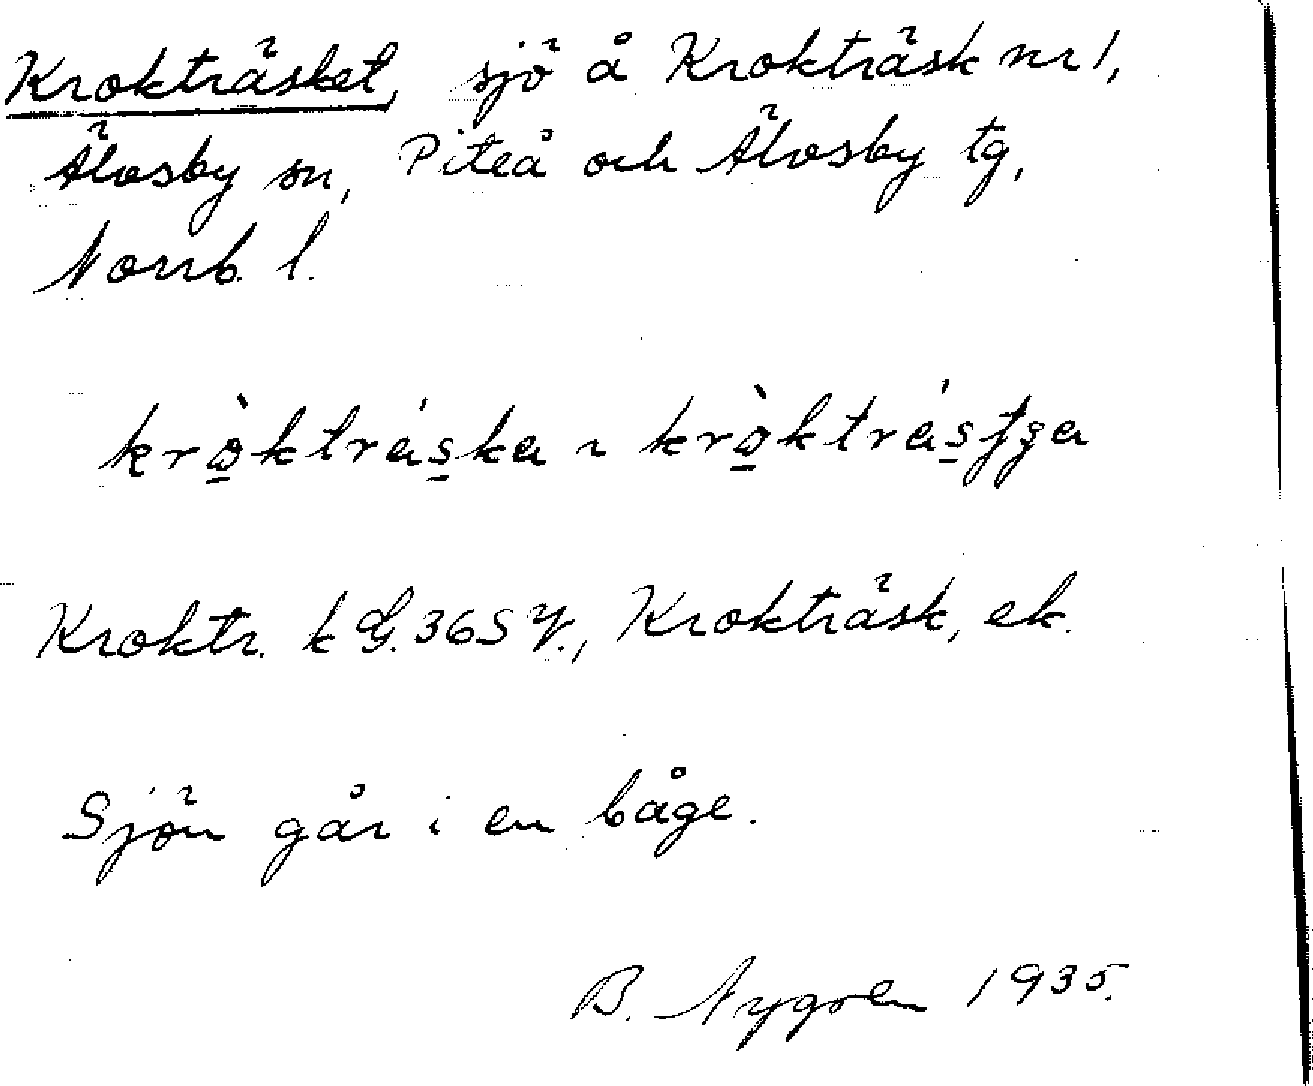 Krokträsket, sjö å Krokträsk nr 1,
Älvsby sn, Piteå och Älvsby tg,
Norrb. l.
kròktráska ~ kròktrásʃʒa
Kroktr. k G. 36SV., Krokträsk, ek.
Sjön går i en båge.
B. Nygren 1935.